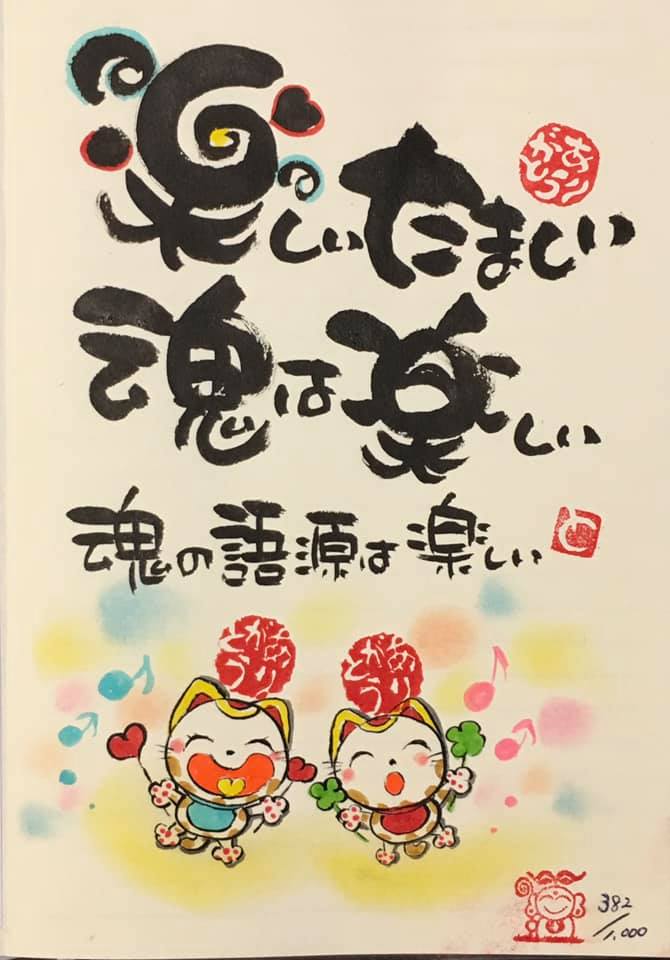 楽しいたましい
ありがとう
魂は楽しい
魂の語源は楽しい
ありがとう
ありがとう
382/1,000